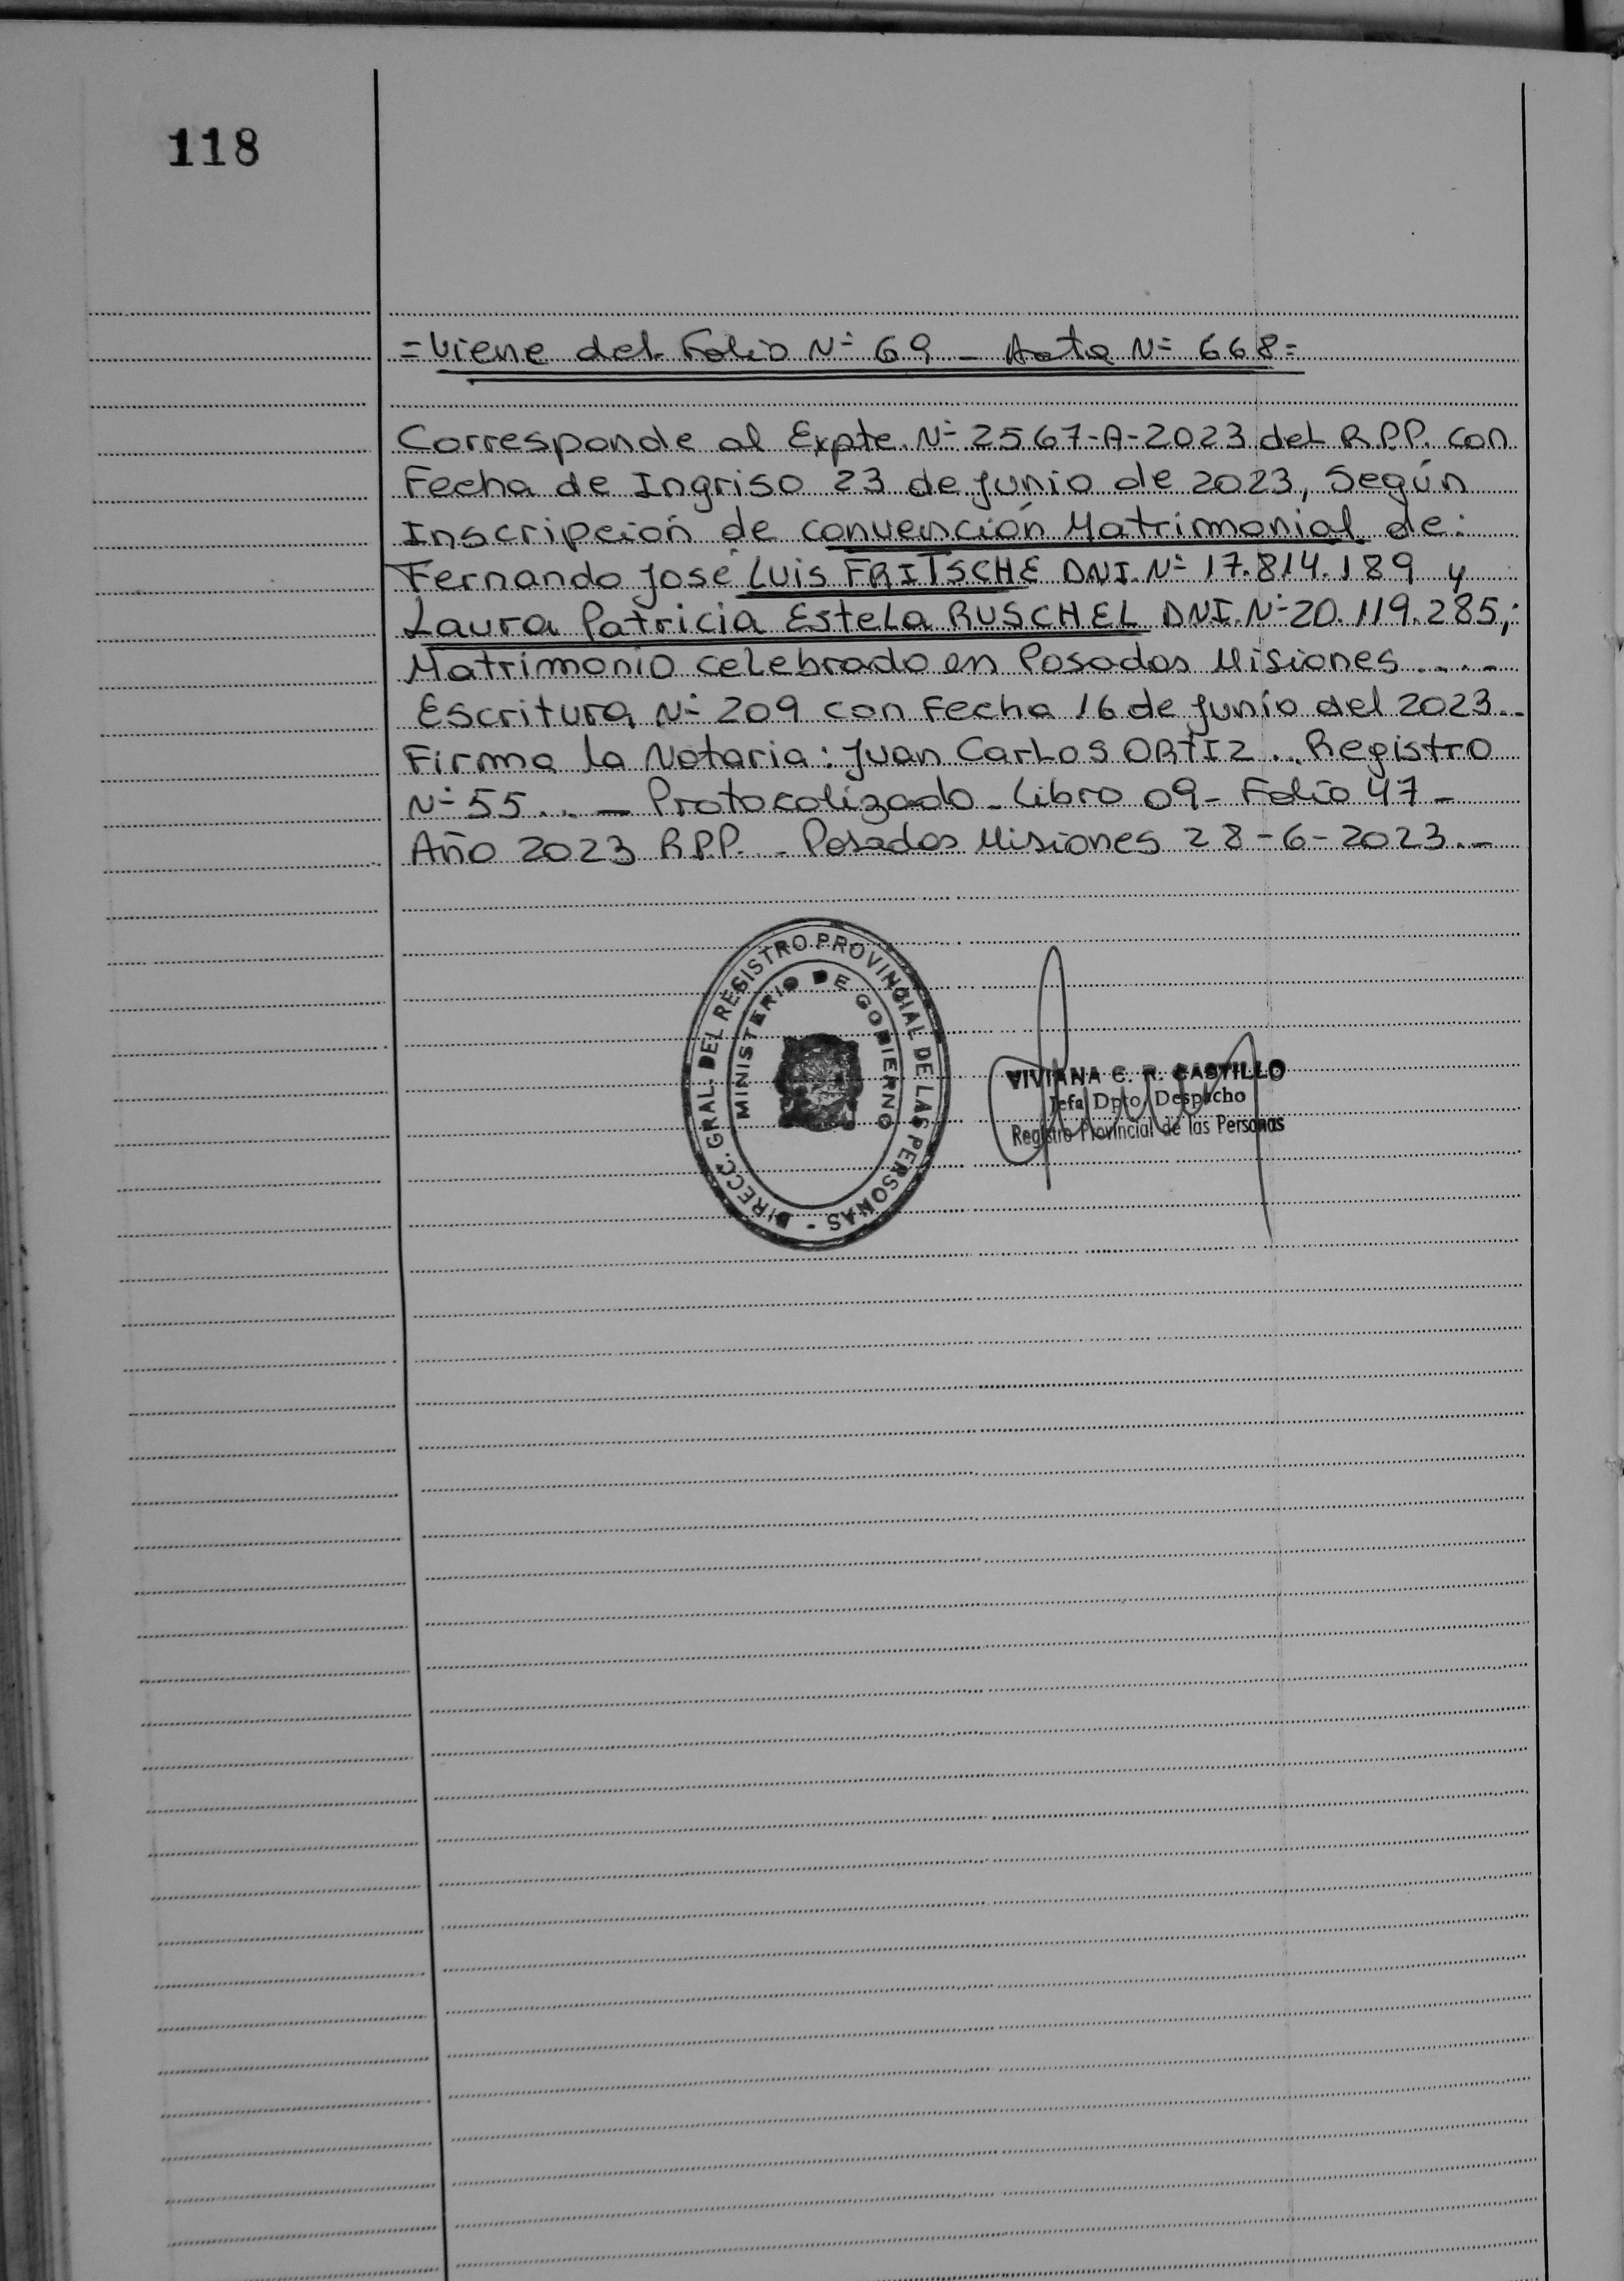 118
=Viene del Folio Nº 69 - Acta Nº 668=
Corresponde al Expte. Nº 2567-A-2023 del R.P.P. con
Fecha de Ingriso 23 de Junio de 2023, Según
Inscripción de convención Matrimonial de:
Fernando José Luis FRITSCHE DNI. Nº 17.814.189 y
Laura Patricia Estela RUSCHEL DNI. Nº 20.119.285;
Matrimonio celebrado en Posadas Misiones .. . . -
Escritura Nº 209 con Fecha 16 de Junio del 2023..
Firma la Notaria: Juan Carlos ORTIZ... Registro
Nº 55... - Protocolizado - Libro 09 - Folio 47 -
Año 2023 R.P.P. - Posadas Misiones 28-6-2023.-
DIRECC. GRAL. DEL REGISTRO PROVINCIAL DE LAS PERSONAS -
MINISTERIO DE GOBIERNO
VIVIANA C. R. CASTILLO
Jefa Dpto. Despacho
Registro Provincial de las Personas